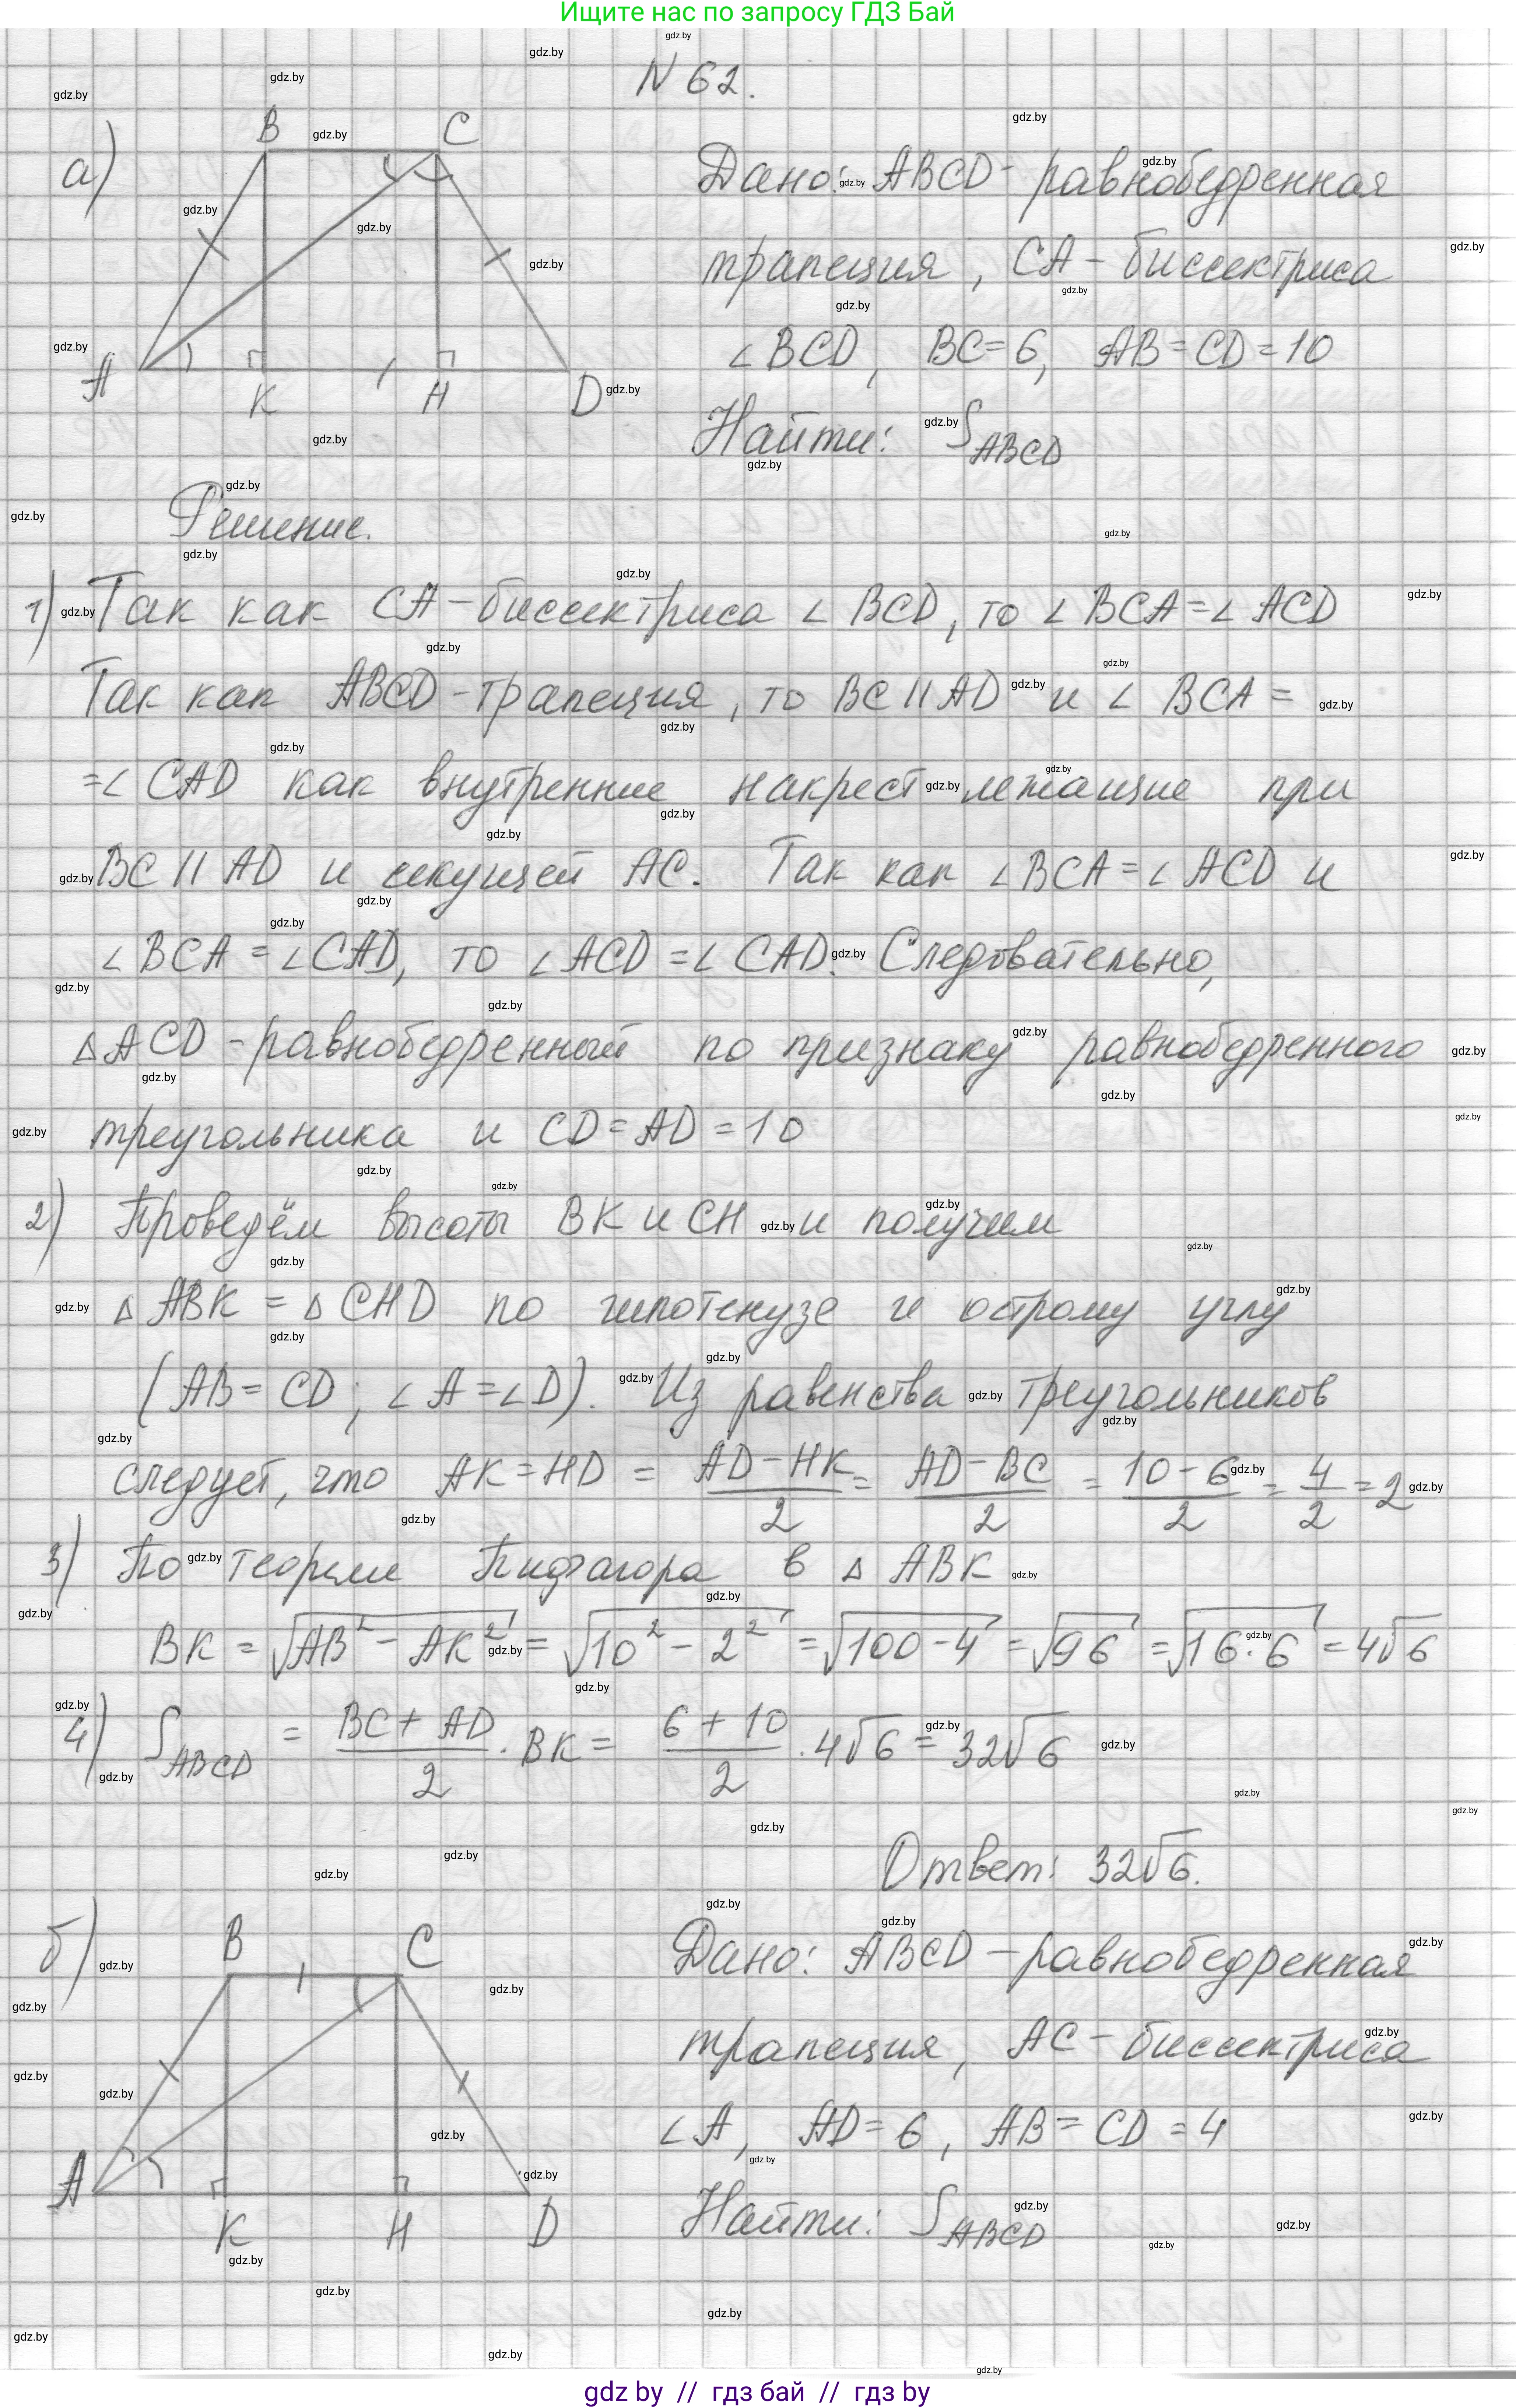 Ищите нас по запросу ГДЗ Бай
N 62.
а)
B C
A K H D
Дано: ABCD - равнобедренная
трапеция, CA - биссектриса
∠BCD, BC=6, AB=CD=10
Найти: S_ABCD
Решение.
1) Так как CA - биссектриса ∠BCD, то ∠BCA=∠ACD
Так как ABCD - трапеция, то BC∥AD и ∠BCA=
=∠CAD как внутренние накрест лежащие при
BC∥AD и секущей AC. Так как ∠BCA=∠ACD и
∠BCA=∠CAD, то ∠ACD=∠CAD. Следовательно,
△ACD - равнобедренный по признаку равнобедренного
треугольника и CD=AD=10
2) Проведём высоты BK и CH и получим
△ABK = △CHD по гипотенузе и острому углу
(AB=CD; ∠A=∠D). Из равенства треугольников
следует, что AK=HD = (AD-HK)/2 = (AD-BC)/2 = (10-6)/2 = 4/2 = 2
3) По теореме Пифагора в △ABK
BK = √(AB²-AK²) = √(10²-2²) = √(100-4) = √96 = √(16·6) = 4√6
4) S_ABCD = (BC+AD)/2 · BK = (6+10)/2 · 4√6 = 32√6
Ответ: 32√6.
б)
B C
A K H D
Дано: ABCD - равнобедренная
трапеция, AC - биссектриса
∠A, AD=6, AB=CD=4
Найти: S_ABCD
gdz by // гдз бай // гдз by